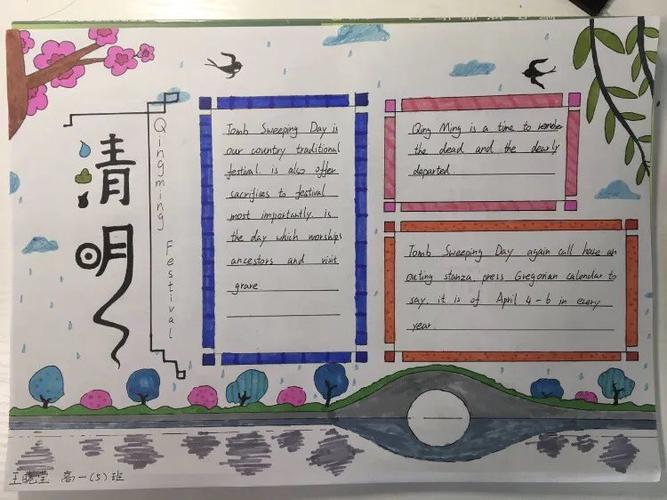 清明
Qingming Festival
Tomb Sweeping Day is
our country traditional
festival. is also offer
sacrifices to festival
most importantly is
the day which worships
ancestors and visit
grave
Qing Ming is a time to remember
the dead and the dearly
departed
Tomb Sweeping Day again call have an
outing stanza press Gregorian calendar to
say. it is of April 4-6 in every
year.
王晓莹 高一(5)班